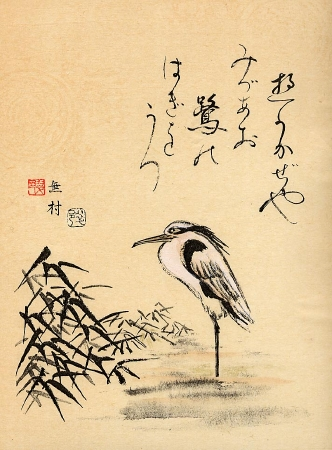 ゆうかぜや
みづあお
鷺の
はぎを
うつ
無村